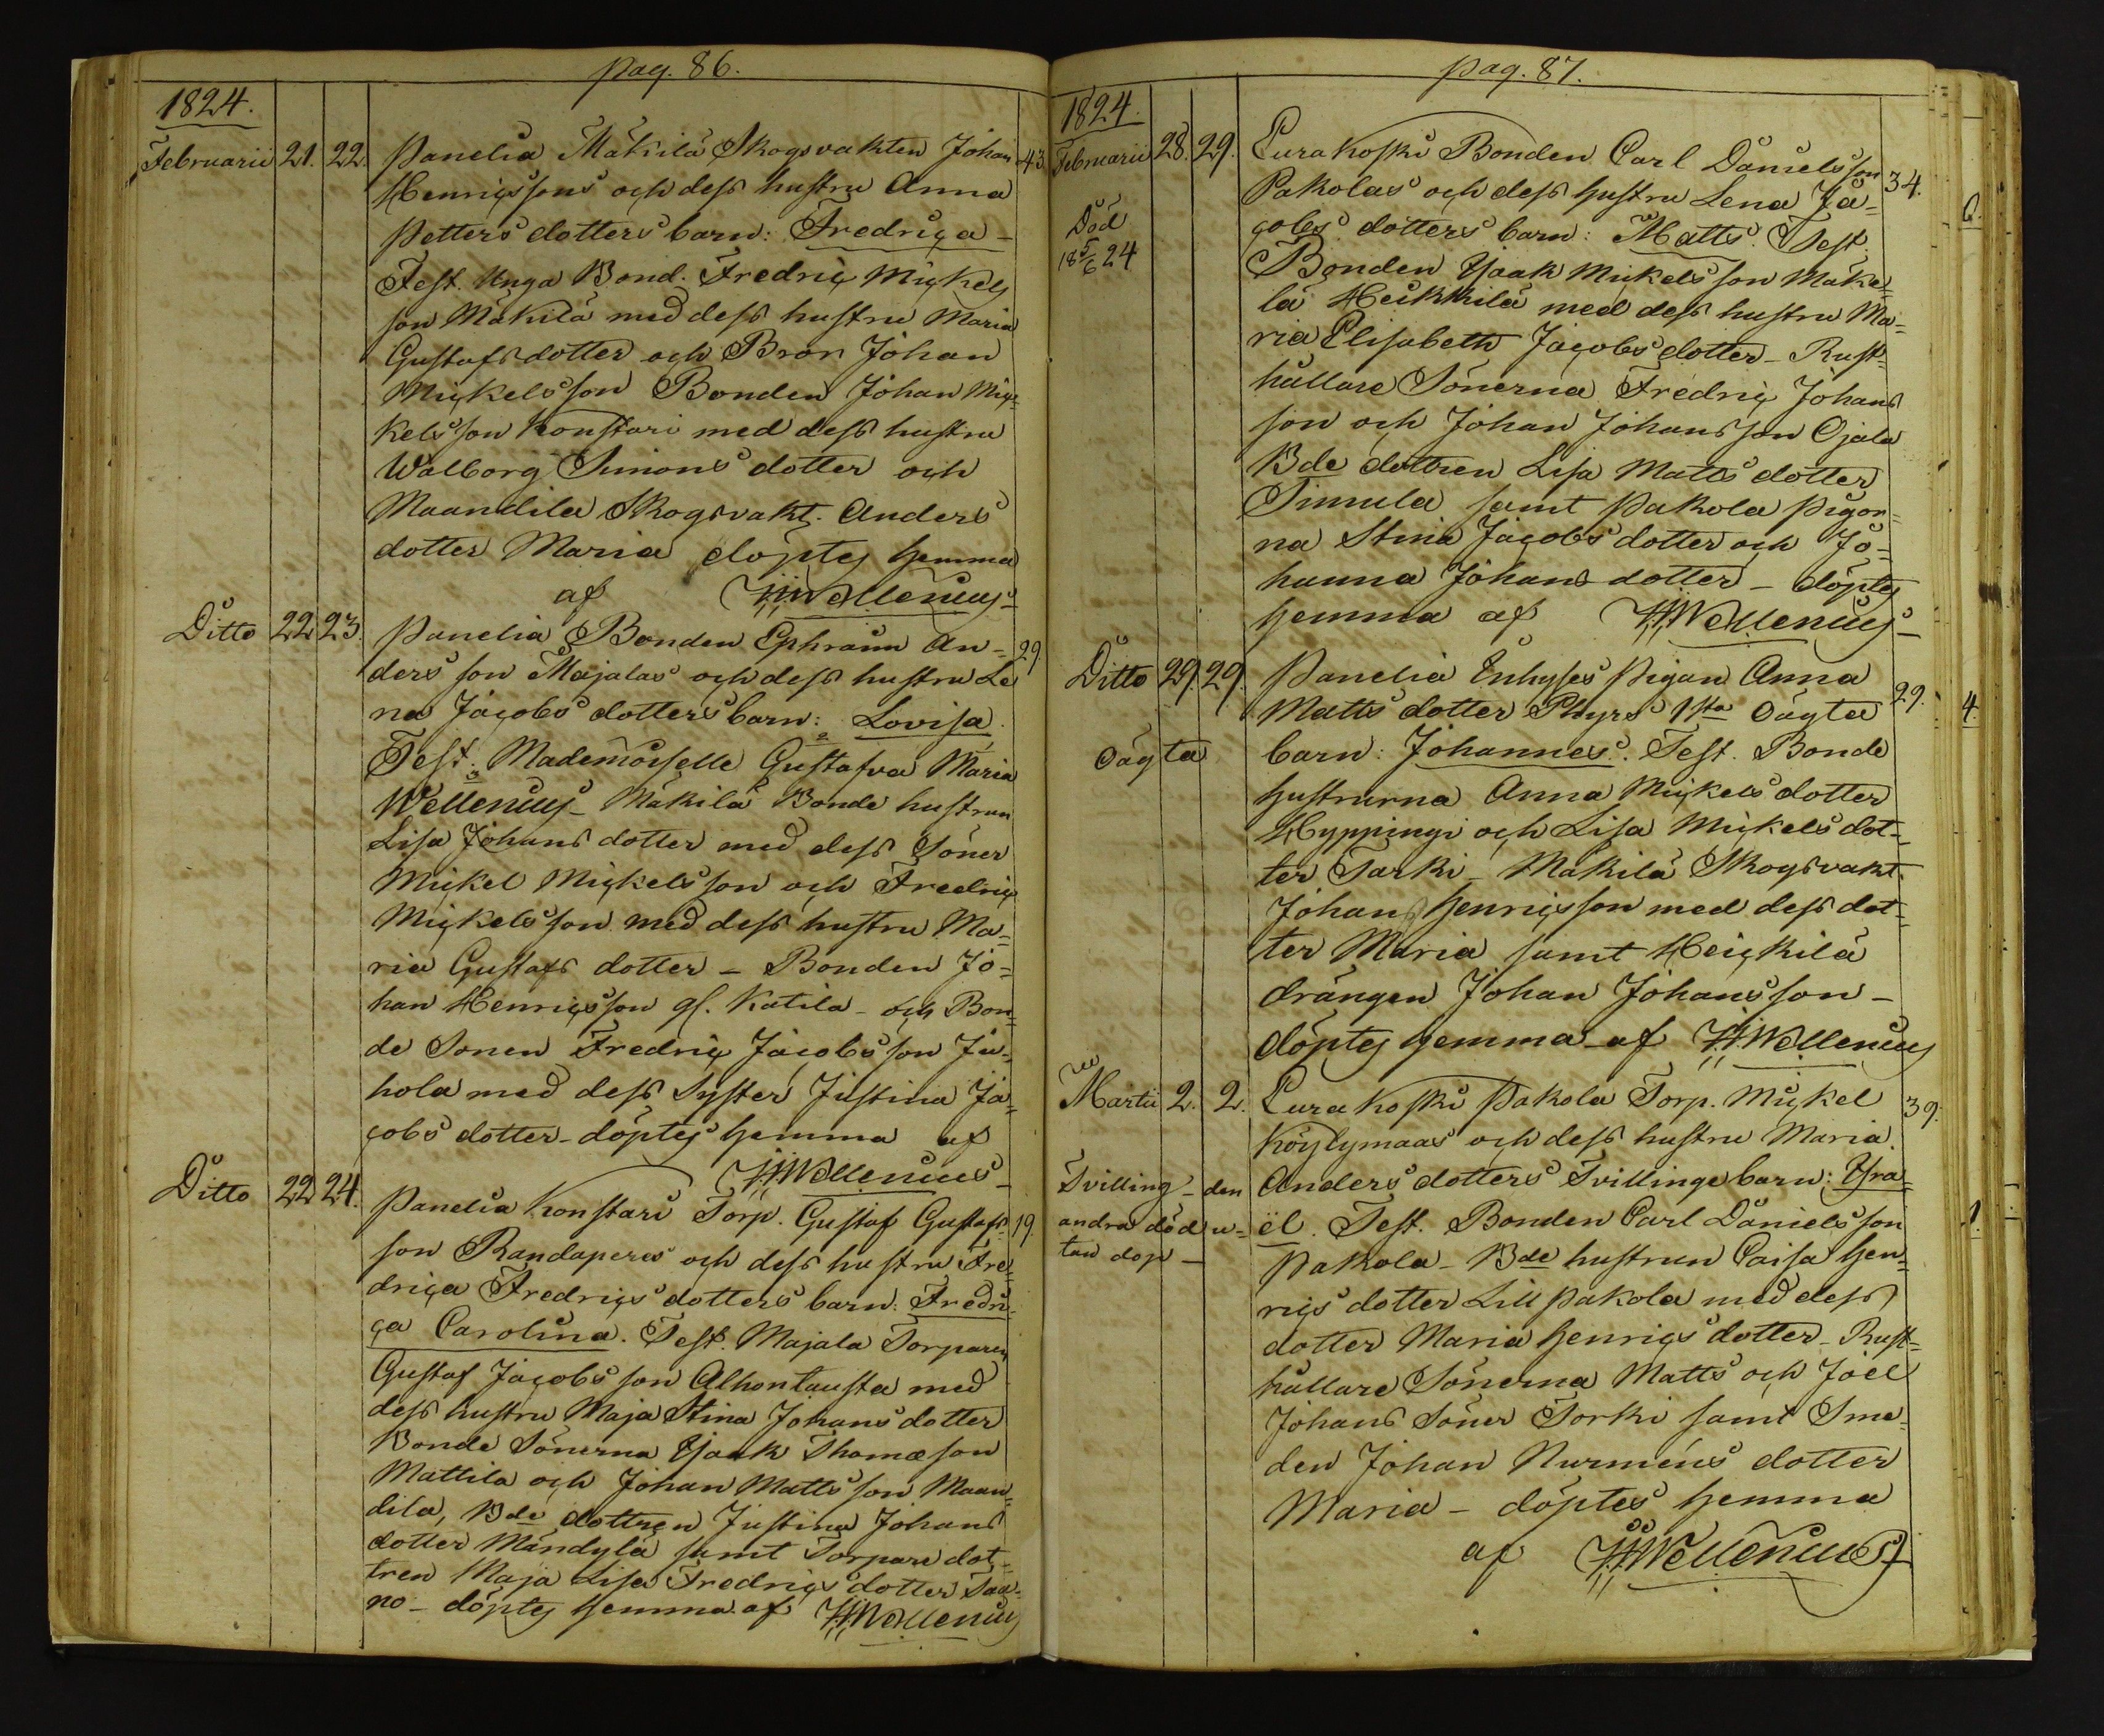 pag. 86.
1824.
Februarii 21. 22. Panelia Mäkilä Skogsvakten Johan 43.
Henricssons och dess hustru Anna
Petters dotters barn: Fredrica –
Test. Unga Bond. Fredric Mickels
son Mäkilä med dess hustru Maria
Gustafs dotter och Bror Johan
Mickelsson Bonden Johan Mic=
kelsson Konstari med dess hustru
Walborg Simons dotter och
Maandila Skogsvakt. Anders
dotter Maria döptes hemma
af HHWellenius –
Ditto 22 23. Panelia Bonden Ephraim An= 29
ders son Majalas och dess hustru Le
na Jacobs dotters barn: Lovisa.
Test. Mademoiselle Gustafva Maria
Wellenius – Mäkilä Bonde hustrun
Lisa Johans dotter med dess Söner
Mickel Mickelsson och Fredric
Mickelsson med dess hustru Ma=
ria Gustafs dotter – Bonden Jo=
han Henricsson gl. Katila – och Bon=
de Sonen Fredric Jacobs son Ju=
hola med dess Syster Justina Ja=
cobs dotter – döptes hemma af
HHWellenius –
Ditto 22 24. Panelia Konstari Torp. Gustaf Gustafs= 19.
son Randaperes och dess hustru Fre=
drica Fredrics dotters barn: Fredri=
ca Carolina. Test. Majala Torparen
Gustaf Jacobs son Alhontausta med
dess hustru Maja Stina Johans dotter
Bonde Sönerna Isaak Thomæson
Mattila och Johan Matts son Maan=
dila, Bde dottren Justina Johans
dotter Mandylä samt Torpare dot=
tren Maja Lisa Fredrics dotter Taa=
no – döptes hemma af HHWellenius
pag. 87.
1824.
Februarii 28. 29. Eurakoski Bonden Carl Danielsson 34.
Pakolas och dess hustru Lena Ja=
Död
cobs dotters barn: Matts. Test.
18 5/6 24
Bonden Isaak Mickels son Mäke=
lä Heickkilä med dess hustru Ma=
ria Elisabeth Jacobs dotter – Rust=
hållare Sönerna Fredric Johans
son och Johan Johansson Ojala
Bde dottren Lisa Matts dotter
Simula samt Pakola pigor=
na Stina Jacobs dotter och Jo=
hanna Johans dotter – döptes
hemma af HHWellenius –
Ditto 29. 29. Panelia Inhyses Pigan Anna 29.
Matts dotter Phyrs 1sta Oägta
Oägta barn: Johannes. Test. Bonde
hustrurna Anna Mickels dotter
Hyppingi och Lisa Mickels dot=
ter Tarki – Mäkilä Skogsvakt.
Johans Henricsson med dess dot=
ter Maria samt Heickilä
drängen Johan Johansson –
döptes hemma af HHWellenius
Martii 2. 2. Eurakoski Pakola Torp. Mickel 39.
Köylymaas och dess hustru Maria
Tvilling – den Anders dotters Tvillinge barn: Isra=
andra död u= ël. Test. Bonden Carl Danielsson
tan dop –
Pakola – Bde hustrun Caisa Hen=
rics dotter Lill Pakola med dess
dotter Maria Henrics dotter – Rust=
hållare Sönerna Matts och Joël
Johans Söner Torki samt Sme=
den Johan Nurmens dotter
Maria – döptes hemma
af HHWellenius
6.
4.
1.